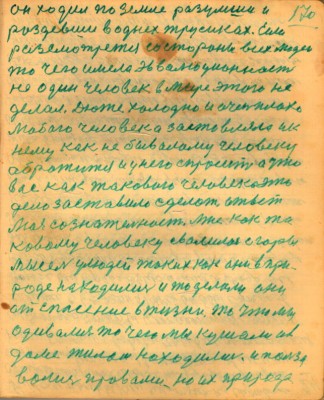 170
он ходил по земле разумши и
раздевши в одних трусиках. Если
рассмотреться со стороны всех людей
то чего имела эвалюционность
не один человек в мире этого не
делал. Дюже холодно и очень плохо
любого человека заставляла и к
нему как не бывалому человеку
обротится и у него спросить а что
вас как такового человека это
дело заставило сделать ответ
моя сознательность. Мне как та
ковому человеку свалилась с горы
мысель у людей таких как они в при
роде находилися и то делали они
от спасение в жизни. то что мы
одивались то чего мы кушали и в
доме жилом находились. и польз
волися правами, но их природа